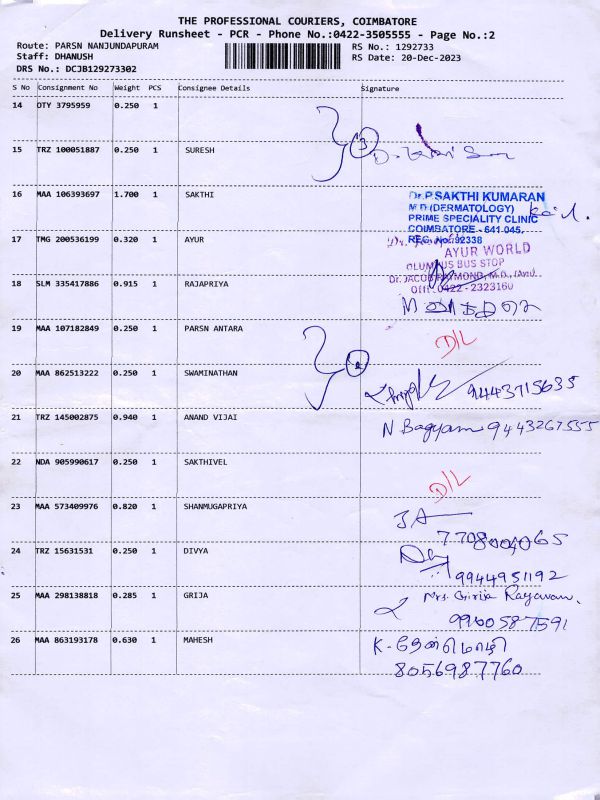 THE PROFESSIONAL COURIERS, COIMBATORE
Delivery Runsheet - PCR - Phone No.:0422-3505555 - Page No.:2
Route: PARSN NANJUNDAPURAM RS No.: 1292733
Staff: DHANUSH RS Date: 20-Dec-2023
DRS No.: DCJB129273302
S No Consignment No Weight PCS Consignee Details Signature
14 OTY 3795959 0.250 1
15 TRZ 100051887 0.250 1 SURESH
16 MAA 106393697 1.700 1 SAKTHI
Dr.P.SAKTHI KUMARAN
M.D (DERMATOLOGY)
PRIME SPECIALITY CLINIC
COIMBATORE - 641 045.
REG. No: 92338
17 TMG 200536199 0.320 1 AYUR
AYUR WORLD
OLUMBUS BUS STOP
Dr. JACOB RAYMOND, M.D.,
Off: 0422 - 2323160
18 SLM 335417886 0.915 1 RAJAPRIYA
19 MAA 107182849 0.250 1 PARSN ANTARA
D/L
20 MAA 862513222 0.250 1 SWAMINATHAN
9443715635
21 TRZ 145002875 0.940 1 ANAND VIJAI
N Bagyam 9443267555
22 NDA 905990617 0.250 1 SAKTHIVEL
D/L
23 MAA 573409976 0.820 1 SHANMUGAPRIYA
24 TRZ 15631531 0.250 1 DIVYA
9944951192
25 MAA 298138818 0.285 1 GRIJA
Mrs. Girija Rayavan.
9900587591
26 MAA 863193178 0.630 1 MAHESH
K-தேன்மொழி
8056987760